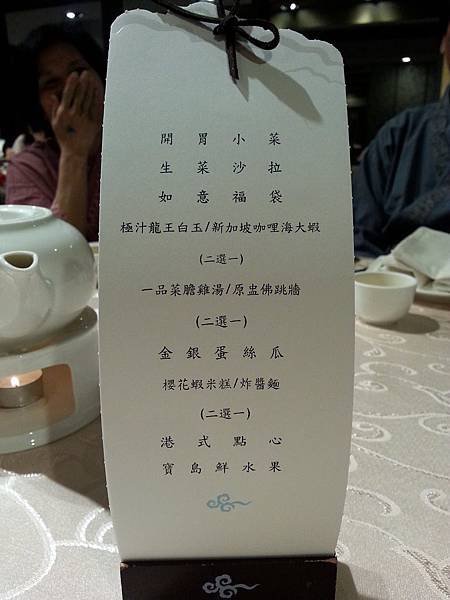 開胃小菜
生菜沙拉
如意福袋
極汁龍王白玉/新加坡咖哩海大蝦
(二選一)
一品菜膽雞湯/原盅佛跳牆
(二選一)
金銀蛋絲瓜
櫻花蝦米糕/炸醬麵
(二選一)
港式點心
寶島鮮水果